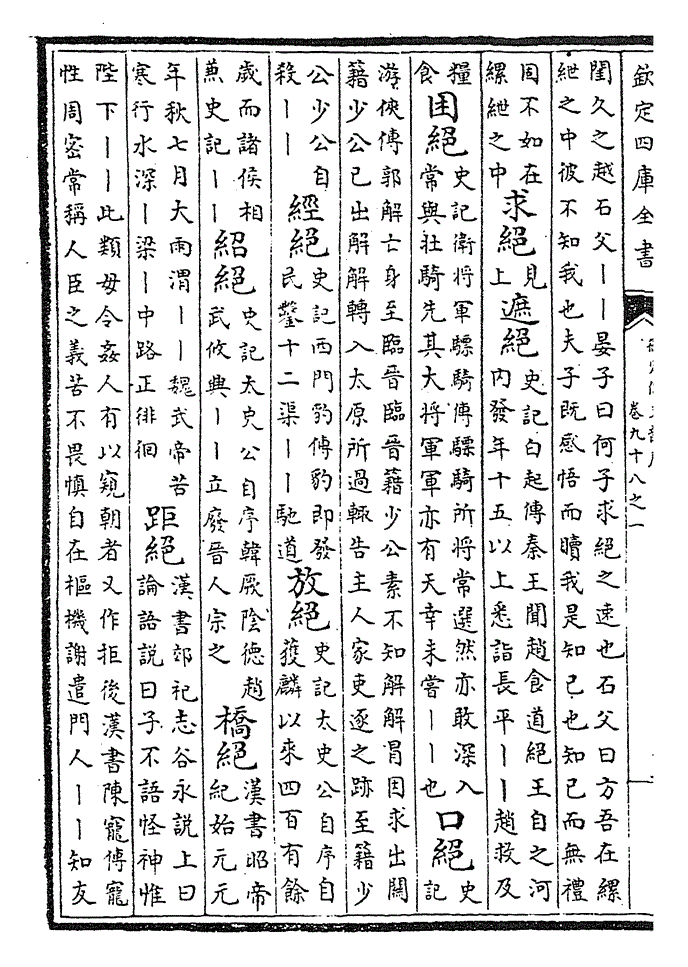 欽定四庫全書
卷九十八之一
閨久之越石父――晏子曰何子求絕之速也石父曰方吾在縲
紲之中彼不知我也夫子既感悟而贖我是知已也知已而無禮
固不如在
縲紲之中
求絕
見
上
遮絕
史記白起傳秦王聞趙食道絕王自之河
內發年十五以上悉詣長平――趙救及
糧
食
困絕
史記衛將軍驃騎傳驃騎所將常選然亦敢深入
常與壯騎先其大將軍軍亦有天幸未嘗――也
口絕
史
記
游俠傳郭解亡身至臨晉臨晉籍少公素不知解解冒因求出關
籍少公已出解解轉入太原所過輒告主人家吏逐之跡至籍少
公少公自
殺――
經絕
史記西門豹傳豹即發
民鑿十二渠――馳道
放絕
史記太史公自序自
獲麟以來四百有餘
歲而諸侯相
兼史記――
紹絕
史記太史公自序韓厥陰德趙
武攸典――立廢晉人宗之
橋絕
漢書昭帝
紀始元元
年秋七月大雨渭――魏武帝苦
寒行水深―梁―中路正徘徊
距絕
漢書郊祀志谷永說上曰
論語說曰子不語怪神惟
陛下――此類毋令姦人有以窺朝者又作拒後漢書陳寵傳寵
性周密常稱人臣之義苦不畏慎自在樞機謝遣門人――知友